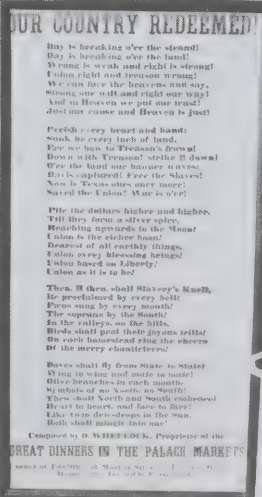 OUR COUNTRY REDEEMED!
Day is breaking o'er the strand!
Day is breaking o'er the land!
Wrong is weak and right is strong!
Union right and treason wrong!
We can face the heavens and say,
Strong our will and right our way!
And in Heaven we put our trust!
Just our cause and Heaven is just!
Perish every heart and hand:
Sunk be every inch of land,
Ere we bow to Treason's frown!
Down with Treason! strike it down!
O'er the land our banner waves!
Davis captured! Free the Slaves!
Now is Texas ours once more!
Saved the Union! War is o'er!
Pile the dollars higher and higher,
Till they form a silver spire,
Reaching upwards to the Moon!
Union is the richer boon!
Dearest of all earthly things,
Union every blessing brings!
Union based on Liberty!
Union as it is to be!
Then, shall Slavery's Knell,
Be proclaimed by every bell!
Pæns sung by every mouth!
The soprano by the South!
In the valleys, on the hills,
Birds shall pour their joyous trills!
On each homestead ring the cheers
Of the merry chanticleers!
Doves shall fly from State to State!
Wing to wing and mate to mate!
Olive branches in each mouth,
Symbols of no North, no South!
Then shall North and South embrace!
Heart to heart, and face to face!
Like two dew-drops in the Sun,
Both shall mingle into one!
Composed by Proprietor of the
GREAT DINNERS IN THE PALACE MARKETS